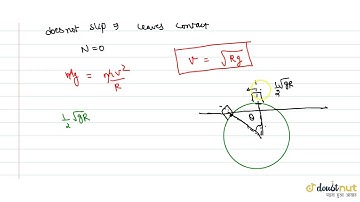 does not slip & leaves contact
N = 0
mg = mv²/R
v = √Rg
½√gR
½√gR
θ
doubtnut